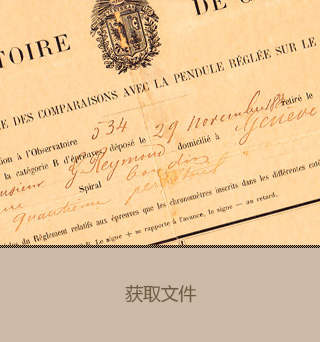 DE
TOIRE
E DES COMPARAISONS AVEC LA PENDULE RÉGLÉE SUR LE
ion à l'Observatoire 534
la catégorie B d'épreuves, déposé le 29 novembre retiré le
usieur G Reymond domicilié à Genève
Spiral
quantième perpétuel
du Règlement relatifs aux épreuves que les chronomètres inscrits dans les différentes caté
Le signe + se rapporte à l'avance, le signe — au retard.
获取文件